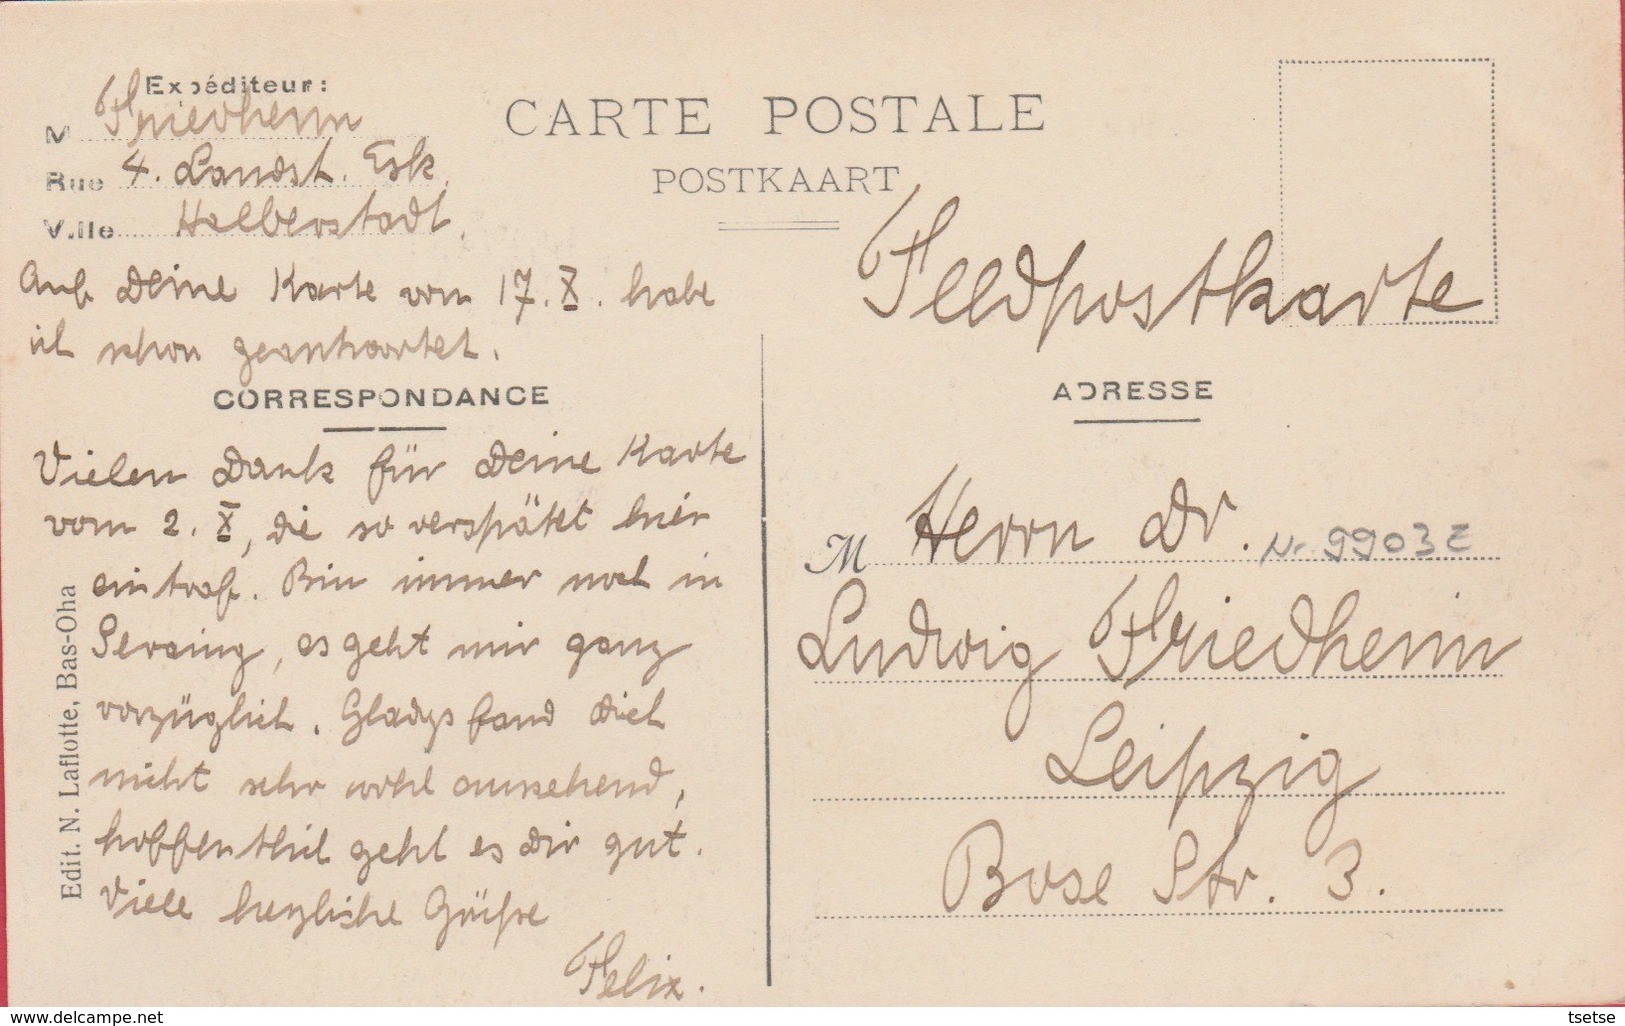 Expéditeur:
M Friedheim
Rue 4. Landst. Esk.
Ville Halberstadt.
Auf Deine Karte vom 17. X. habe
ich schon geantwortet.
CORRESPONDANCE
Vielen Dank für Deine Karte
vom 2. X, die so verspätet hier
eintraf. Bin immer noch in
Seraing, es geht mir ganz
vorzüglich. Gladys fand Dich
nicht sehr wohl aussehend,
hoffentlich geht es Dir gut.
Viele herzliche Grüsse
Felix.
Edit. N. Laflotte, Bas-Oha
CARTE POSTALE
POSTKAART
Feldpostkarte
ADRESSE
M Herrn Dr. Nr 9903 Z
Ludwig Friedheim
Leipzig
Bose Str. 3.
www.delcampe.net
tsetse